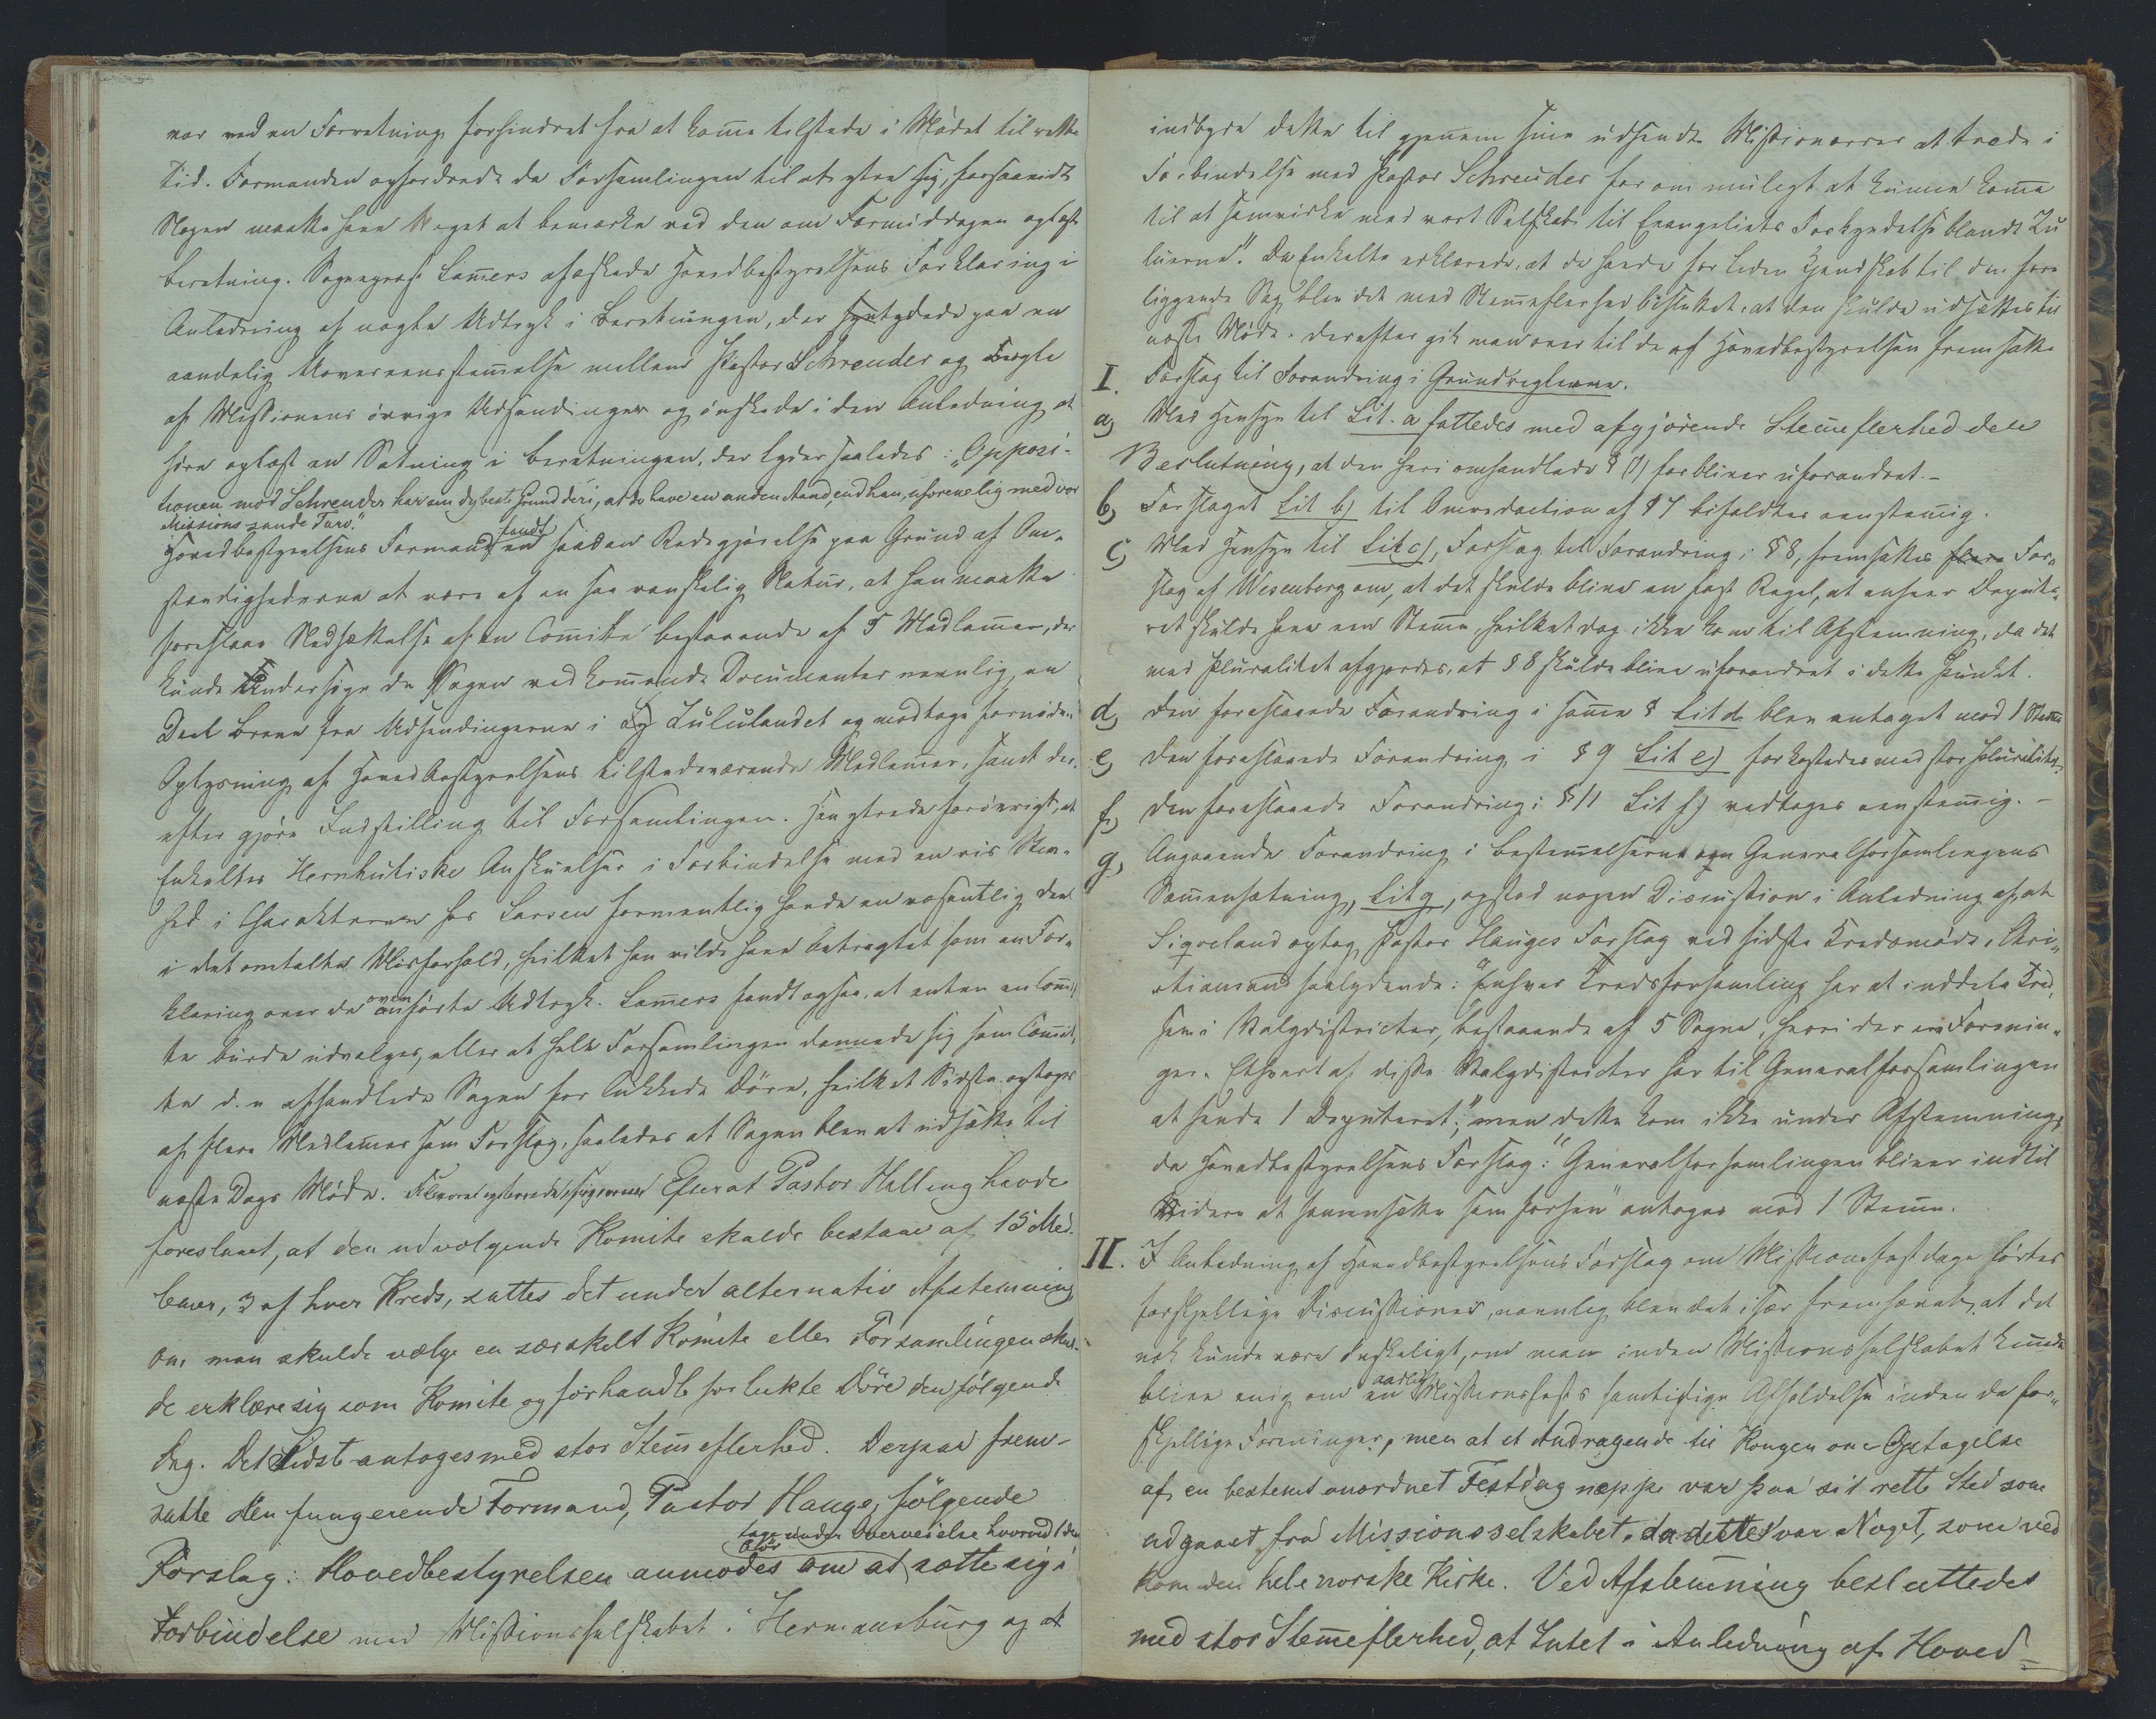 var ved en Forretning forhindret fra at kom̄e tilstede i Mødet til rette
Tid. Formanden opfordrede da Forsamlingen til at yttre sig, forsaavidt
Nogen maatte have Noget at bemærke ved den om Formiddagen oplæste
Beretning. Sognepræst Lam̄ers afæskede Hovedbestyrelsens Forklaring i
Anledning af nogle Udtryk i Beretningen, der tydede paa en
aandelig Uovereensstem̄else mellem Pastor Schreuder og Nogle
af Missionens øvrige Udsendinger og ønskede i den Anledning at
høre oplæst en Sætning i Beretningen, der lyder saaledes: „Opposi-
tionen mod Schreuder har sin dybeste Grund deri, at de have en anden Aand, end han, uforenelig med vor
Missions sande Tarv."
Hovedbestyrelsens Formand fandt en saadan Redegjørelse paa Grund af Om-
stændighederne at være af en saa vanskelig Natur, at han maatte
foreslaae Nedsættelse af en Com̄itee bestaaende af 5 Medlem̄er, der
kunde undersøge de Sagen vedkom̄ende Documenter navnlig en
Deel Breve fra Udsendingerne i Zululandet og modtage fornøden
Oplysning af Hovedbestyrelsens tilstedeværende Medlem̄er, samt der-
efter gjøre Indstilling til Forsamlingen. Han yttrede forøvrigt, at
Enkeltes Hernhutiske Anskuelser i Forbindelse med en vis Stiv-
hed i Charakteren hos Larsen formentlig havde en væsentlig Deel
i det omtalte Misforhold, hvilket han vilde have betragtet som en For-
klaring over de ovenanførte Udtryk. Lam̄ers fandt ogsaa, at enten en Com̄i-
tee burde udvælges, eller at hele Forsamlingen dannede sig som Com̄it-
tee og afhandlede Sagen for lukkede Døre, hvilket Sidste optoges
af flere Medlem̄er som Forslag, saaledes at Sagen blev at udsætte til
næste Dags Møde. Efterat Pastor Halling havde
foreslaaet, at den udvælgende Komite skulde bestaae af 15 Med-
lem̄er, 3 af hver Kreds, sattes det under alternativ Afstem̄ning,
om man skulde vælge en særskilt Komite eller Forsamlingen skul-
de erklære sig som Komite og forhandle for lukte Döre den følgende
Dag. Det Sidste antoges med stor Stem̄eflerhed. Derpaa frem-
satte den fungerende Formand, Pastor Hauge, følgende
tage under Overveielse hvorvidt den
bør
Forslag: Hovedbestyrelsen anmodes om at sætte sig i
Forbindelse med Missionsselskabet i Hermansburg og at
indbyde dette til gjennem sine udsendte Missionærer at træde i
Forbindelse med Pastor Schreuder for om muligt at kunne kom̄e
til at samvirke med vort Selskab til Evangeliets Forkyndelse blandt Zu
luerne." Da Enkelte erklærede, at de havde for liden Kjendskab til den fore
liggende Sag, blev det med Stem̄eflerhed besluttet, at den skulde udsættes til
næste Møde. Derefter gik man over til de af Hovedbestyrelsen fremsatte
I. Forslag til Forandring i Grundreglerne.
a) Med Hensyn til Lit. a fattedes med afgjörende Stem̄eflerhed den
Beslutning, at den heri omhandlede § forbliver uforandret. -
b) Forslaget Lit b) til Omredaction af § 7 bifaldtes eenstem̄ig.
c) Med Hensyn til Lit c), Forslag til Forandring i § 8, fremsattes For-
slag af Wesenberg om, at det skulde blive en fast Regel, at enhver Deputee-
ret skulde have een Stem̄e, hvilket dog ikke kom til Afstemning, da det
med Pluralitet afgjordes, at § 8 skulde blive uforandret i dette Punkt.
d) Den foreslaaede Forandring i sam̄e § Lit d. blev antaget mod 1 Stem̄e
e) Den foreslaaede Forandring i § 9 Lit e) forkastedes med stor Pluralitet.
f) Den foreslaaede Forandring i § 11 Lit f) vedtoges eenstem̄ig. -
g) Angaaende Forandring i Bestem̄elserne om Generalforsamlingens
Sam̄ensætning, Lit g, opstod nogen Discussion i Anledning af, at
Sigveland optog Pastor Hauges Forslag ved sidste Kredsmøde i Chri-
stiansand saalydende: "Enhver Kredsforsamling har at inddele Kred-
sen i Valgdistricter, bestaaende af 5 Sogne, hvori der er Forenin-
ger. Ethvert af disse Valgdistricter har til Generalforsamlingen
at sende 1 Deputeret;" men dette kom ikke under Afstemning,
da Hovedbestyrelsens Forslag: "Generalforsamlingen bliver indtil
Videre at sam̄ensætte som forhen" antoges mod 1 Stem̄e.
II. I Anledning af Hovedbestyrelsens Forslag om Missionsfestdage førtes
forskjellige Discussioner, navnlig blev det især fremhævet, at det
nok kunde være ønskeligt, om man inden Missionsselskabet kunde
blive enig om en aarlig Missionsfests samtidige Afholdelse inden de for-
skjellige Foreninger, men at et Andragende til Kongen om Optagelse
af en bestemt anordnet Festdag neppe var paa sit rette Sted som
udgaaet fra Missionsselskabet, da dette var Noget, som ved
kom den hele norske Kirke. Ved Afstem̄ning besluttedes
med stor Stem̄eflerhed, at Intet i Anledning af Hoved-